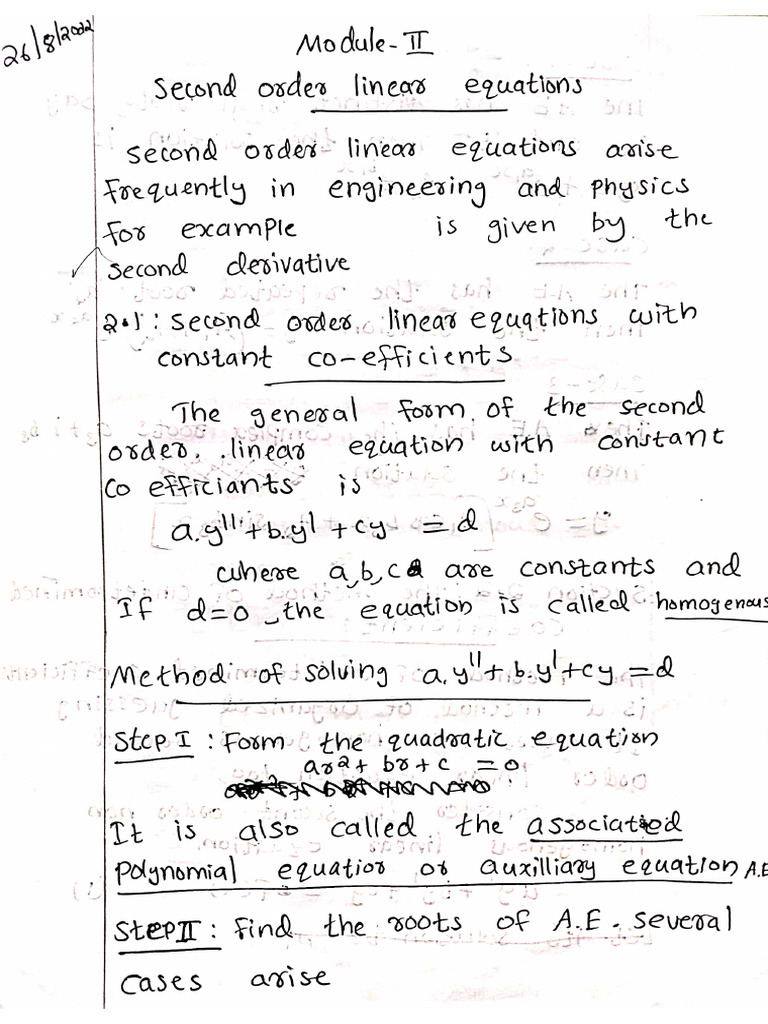 26/8/2022
Module-II
Second order linear equations
Second order linear equations arise
frequently in engineering and physics
for example is given by the
second derivative
2.1: Second order linear equations with
constant co-efficients
The general form of the second
order, linear equation with constant
co efficiants is
a.y''+b.y'+cy = d
where a,b,c are constants and
If d=0, the equation is called homogenous
Method of solving a.y''+b.y'+cy=d
Step I : Form the quadratic equation
ar2+ br+c =0
It is also called the associated
polynomial equation or auxilliary equation A.E
Step II : Find the roots of A.E. several
cases arise